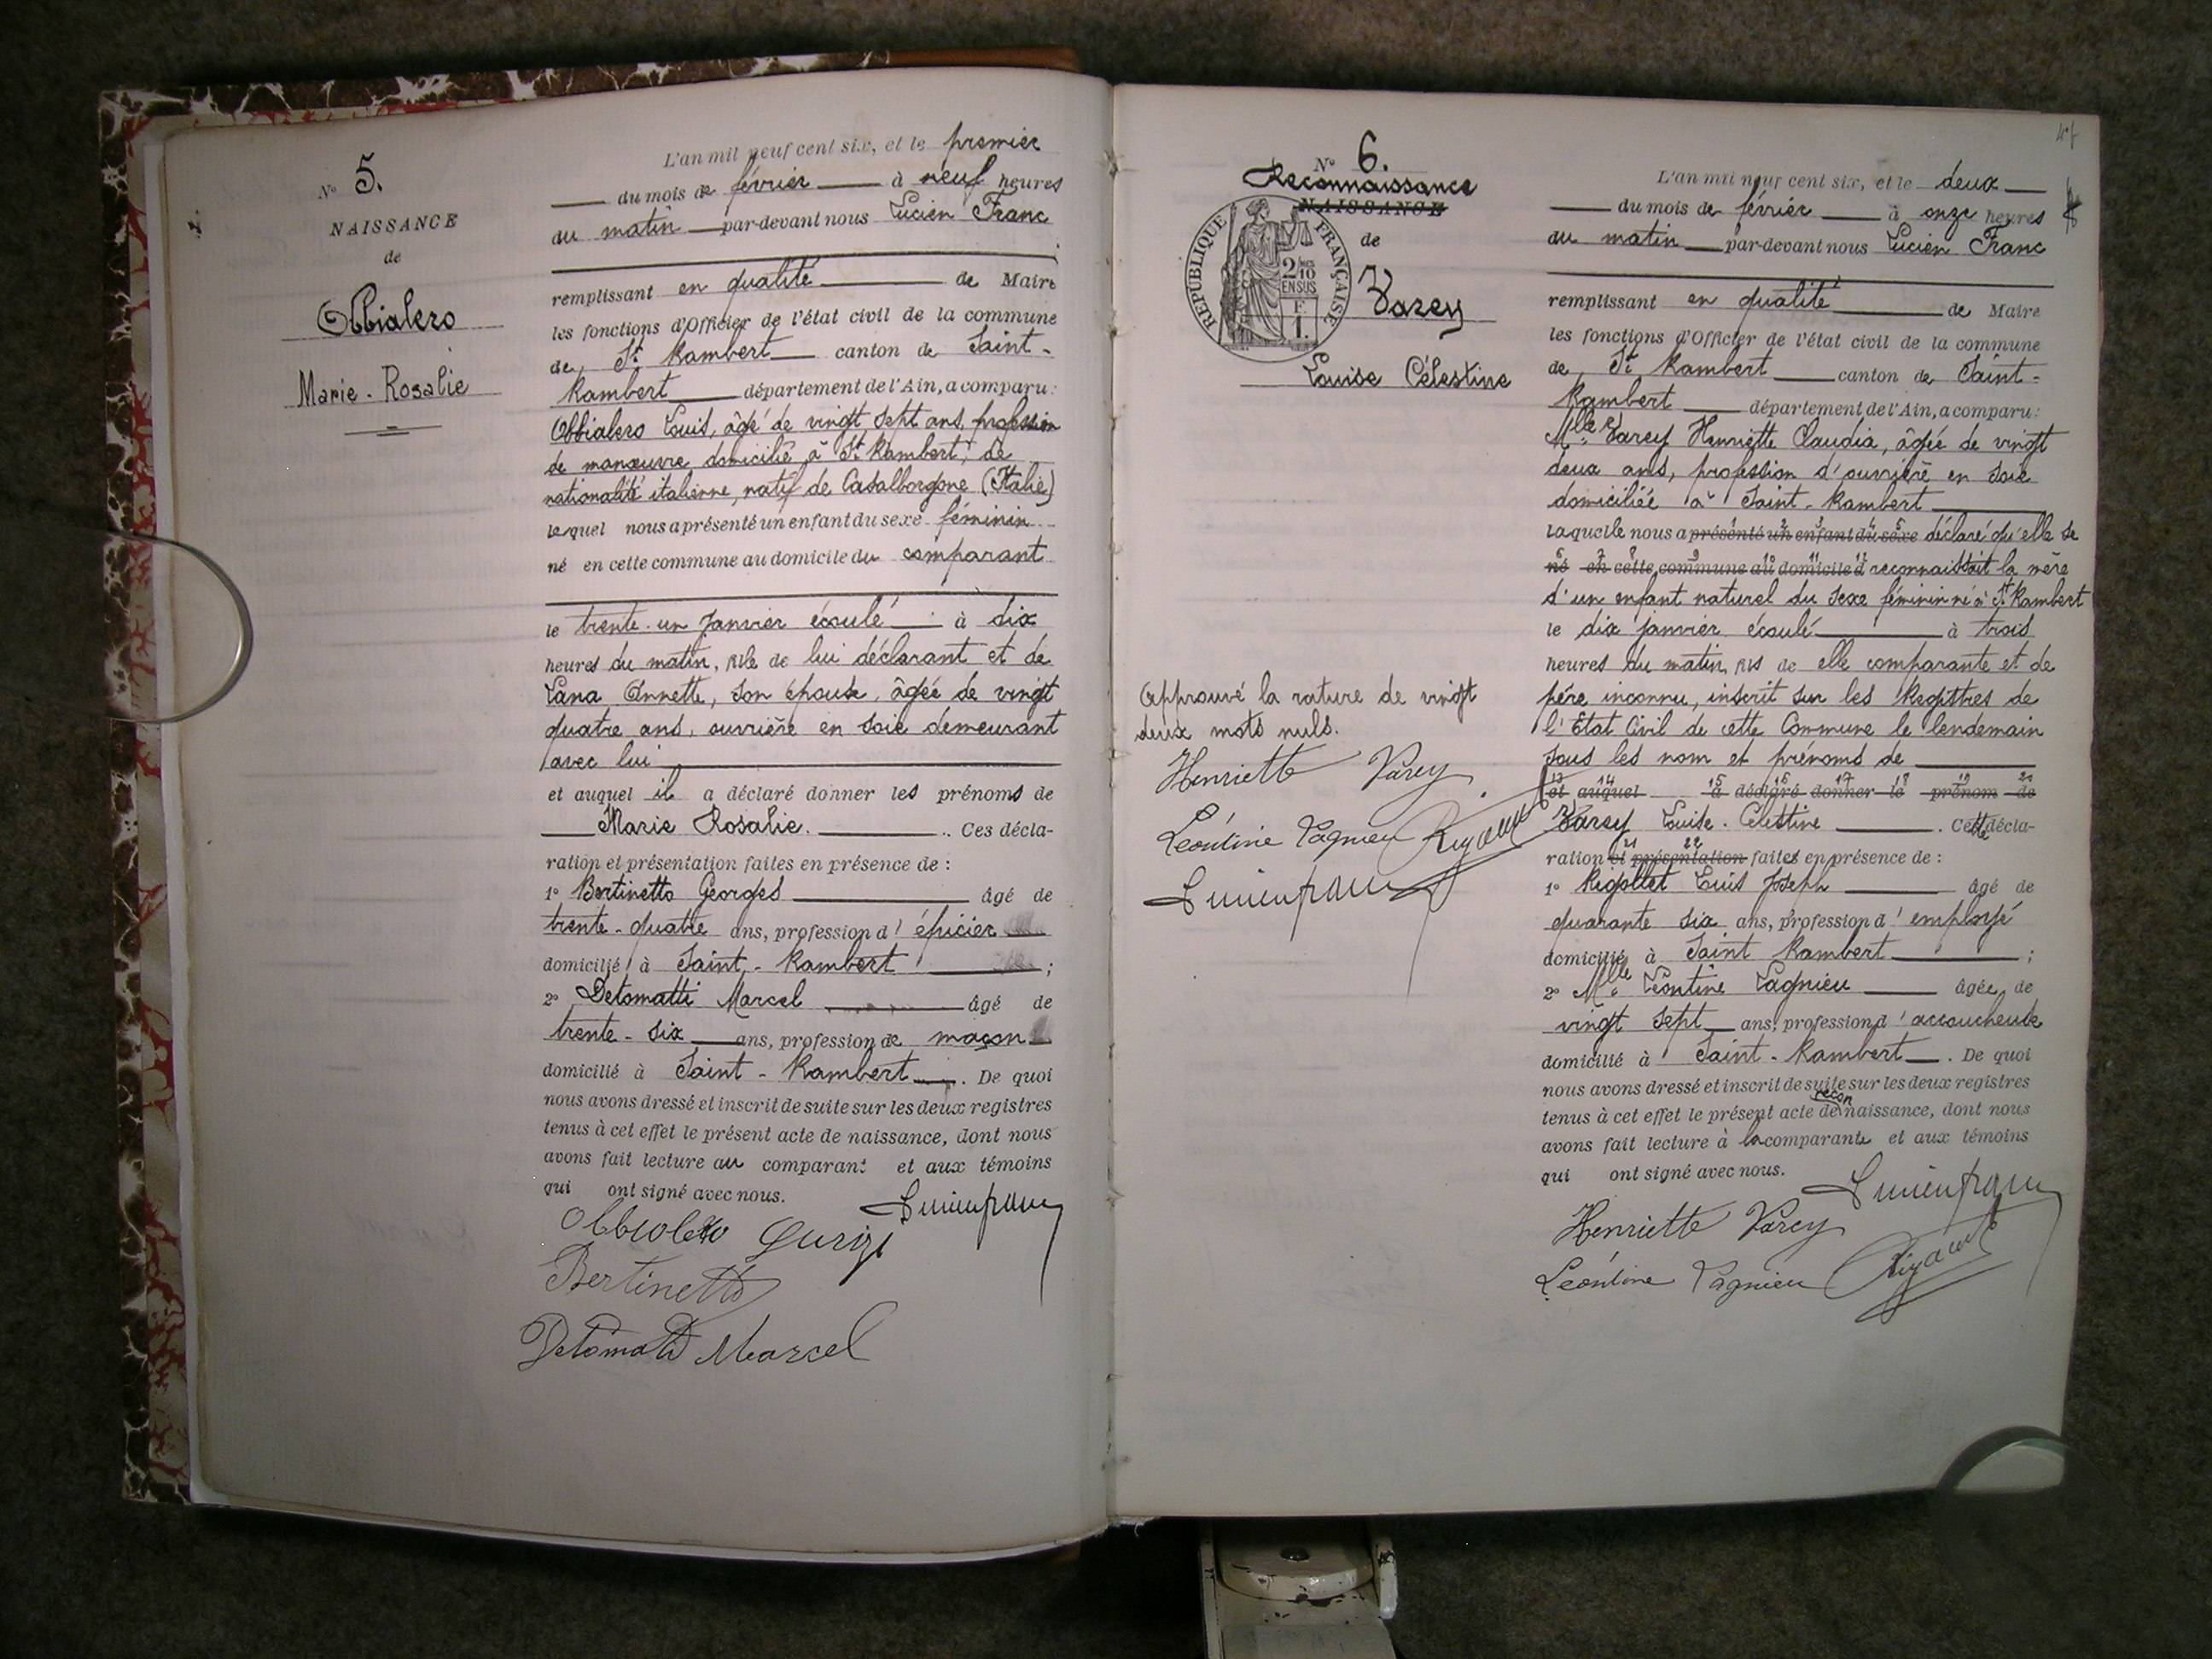 N° 5.
NAISSANCE
de
Obbialero
Marie-Rosalie
L'an mil neuf cent six, et le premier
du mois de février à neuf heures
du matin par-devant nous Lucien Franc
remplissant en qualité de Maire
les fonctions d'Officier de l'état civil de la commune
de St Rambert canton de Saint-
Rambert département de l'Ain, a comparu:
Obbialero Louis, âgé de vingt sept ans, profession
de manœuvre domicilié à St Rambert, de
nationalité italienne, natif de Casalborgone (Italie)
lequel nous a présenté un enfant du sexe féminin
né en cette commune au domicile du comparant
le trente-un janvier écoulé à dix
heures du matin, fille de lui déclarant et de
Vana Annette, son épouse, âgée de vingt
quatre ans, ouvrière en soie demeurant
avec lui
et auquel il a déclaré donner les prénoms de
Marie Rosalie. Ces décla-
ration et présentation faites en présence de :
1° Bertinetto Georges âgé de
trente-quatre ans, profession d'épicier
domicilié à Saint-Rambert ;
2° Detomatti Marcel âgé de
trente-six ans, profession de maçon
domicilié à Saint-Rambert. De quoi
nous avons dressé et inscrit de suite sur les deux registres
tenus à cet effet le présent acte de naissance, dont nous
avons fait lecture au comparant et aux témoins
qui ont signé avec nous.
Lucien franc
Bertinetto
Detomatti Marcel
N° 6.
Reconnaissance
NAISSANCE
de
REPUBLIQUE FRANÇAISE
2/10
EN SUS
F
1.
Varey
Louise Célestine
Approuvé la rature de vingt
deux mots nuls.
Henriette Varey
Léontine Vagnieu
Lucien franc
L'an mil neuf cent six, et le deux
du mois de février à onze heures
du matin par-devant nous Lucien Franc
remplissant en qualité de Maire
les fonctions d'Officier de l'état civil de la commune
de St Rambert canton de Saint-
Rambert département de l'Ain, a comparu:
Mlle Varey Henriette Claudia, âgée de vingt
deux ans, profession d'ouvrière en soie
domiciliée à Saint-Rambert
laquelle nous a présenté un enfant du sexe déclaré qu'elle se
né en cette commune au domicile d reconnaissait la mère
d'un enfant naturel du sexe féminin né à St Rambert
le dix janvier écoulé à trois
heures du matin, fils de elle comparante et de
père inconnu, inscrit sur les Registres de
l'Etat Civil de cette Commune le lendemain
sous les nom et prénoms de
13 14 15 16 17 18 19 20
et auquel a déclaré donner le prénom de
Varey Louise-Célestine. Cette décla-
ration et présentation faites en présence de :
1° Rigollet Louis Joseph âgé de
quarante six ans, profession d'employé
domicilié à Saint Rambert ;
2° Mlle Léontine Vagnieu âgée de
vingt sept ans, profession d'accoucheuse
domicilié à Saint-Rambert. De quoi
nous avons dressé et inscrit de suite sur les deux registres
recon
tenus à cet effet le présent acte de naissance, dont nous
avons fait lecture à la comparante et aux témoins
qui ont signé avec nous.
Lucien franc
Henriette Varey
Léontine Vagnieu